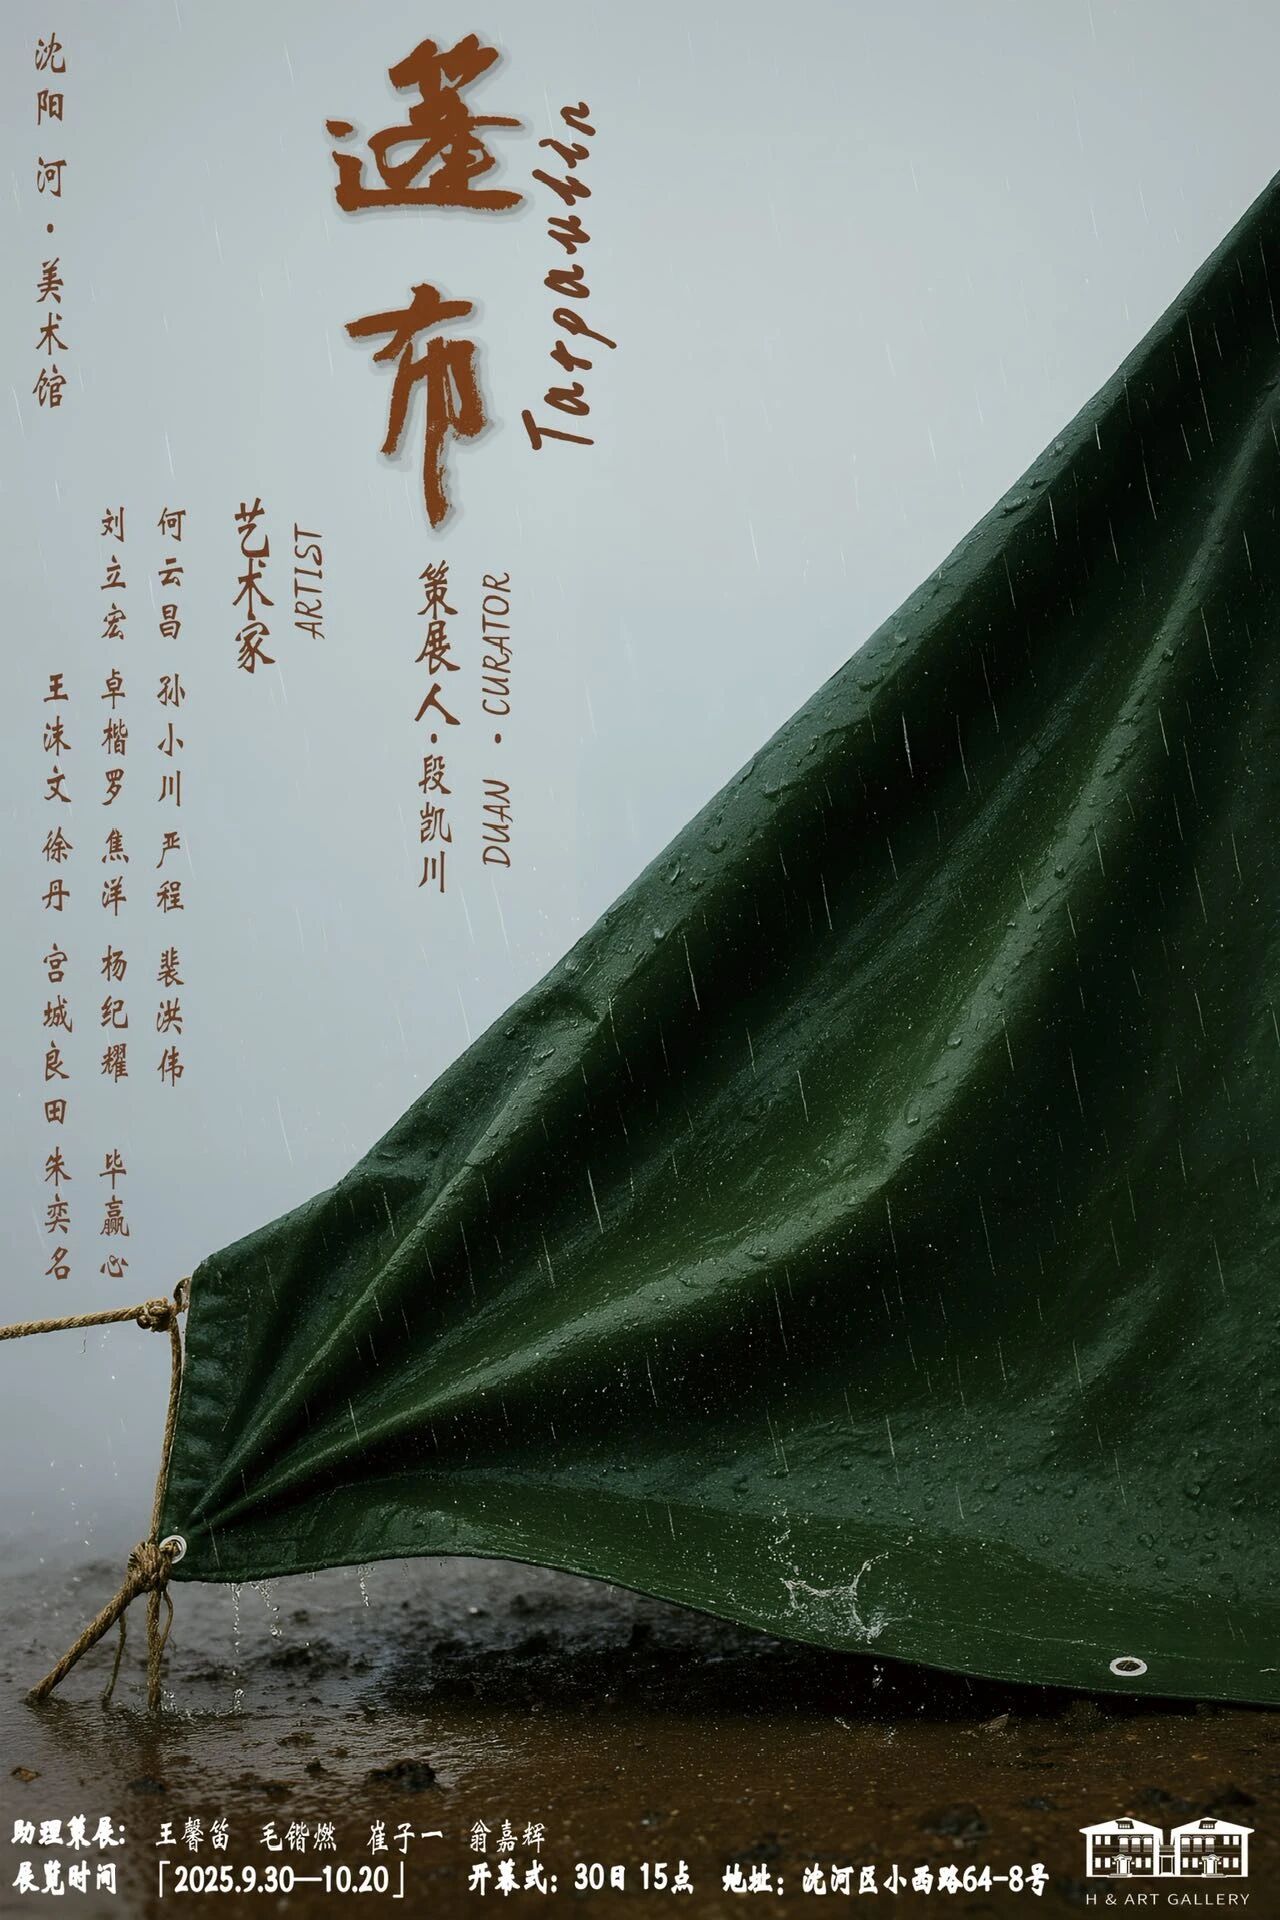 沈阳 河·美术馆
篷布
Tarpaulin
策展人·段凯川
DUAN · CURATOR
艺术家
ARTIST
何云昌 孙小川 严程 裴洪伟
刘立宏 卓楷罗 焦洋 杨纪耀 毕赢心
王沫文 徐丹 宫城良田 朱奕名
助理策展: 王馨笛 毛锴燃 崔子一 翁嘉辉
展览时间 「2025.9.30—10.20」 开幕式: 30日 15点 地址: 沈河区小西路64-8号
H & ART GALLERY